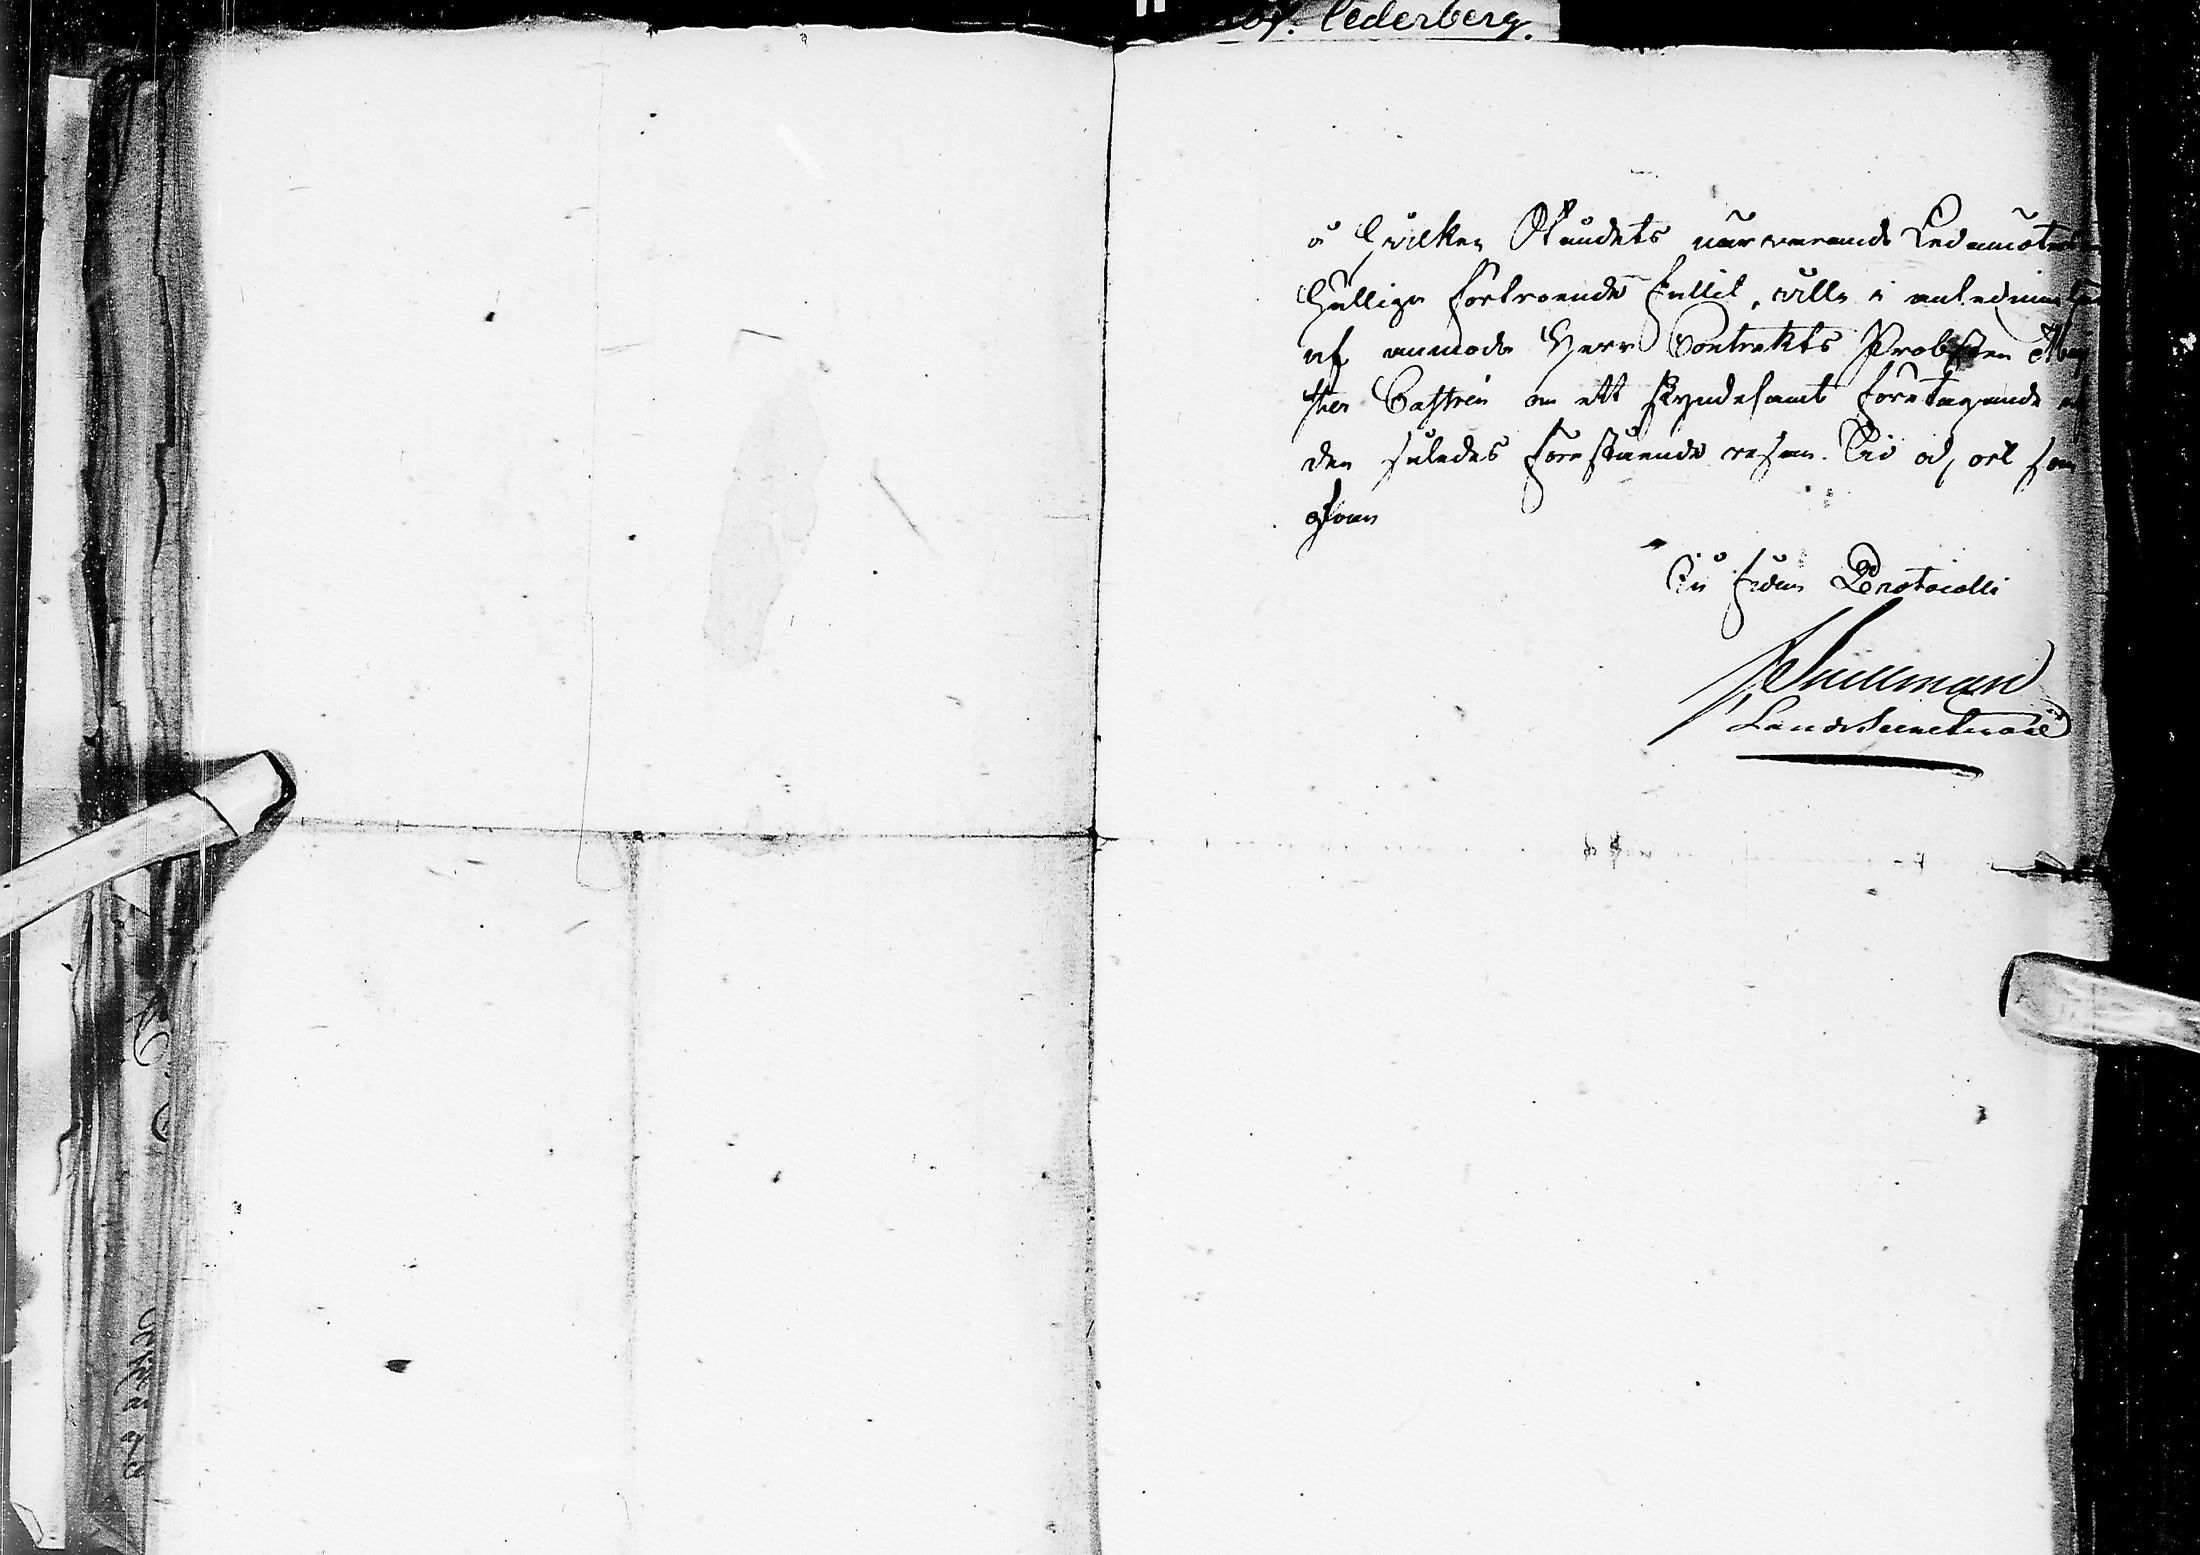 Cederberg.
å hvilken Ståndets närwarande Ledamöter
hälliga förtroende fallit, wille i anledning
af anmoda Herr Contrakts Probsten Mag
ster Castrén om ett skyndesamt företagande af
den således förestående resan. Tid och ort som
ofvan
In fidem Protocolli
Landssecreterare